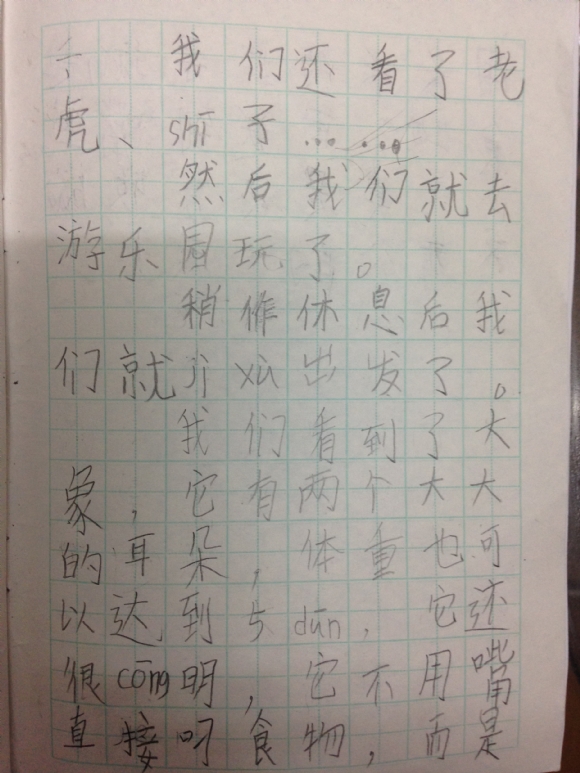 我们还看了老
虎、shī子……
然后我们就去
游乐园玩了。
稍作休息后我
们就jì xù出发了。
我们看到了大
象，它有两个大大
的耳朵，体重也可
以达到5dūn，它还
很cōng明，它不用嘴
直接叼食物，而是